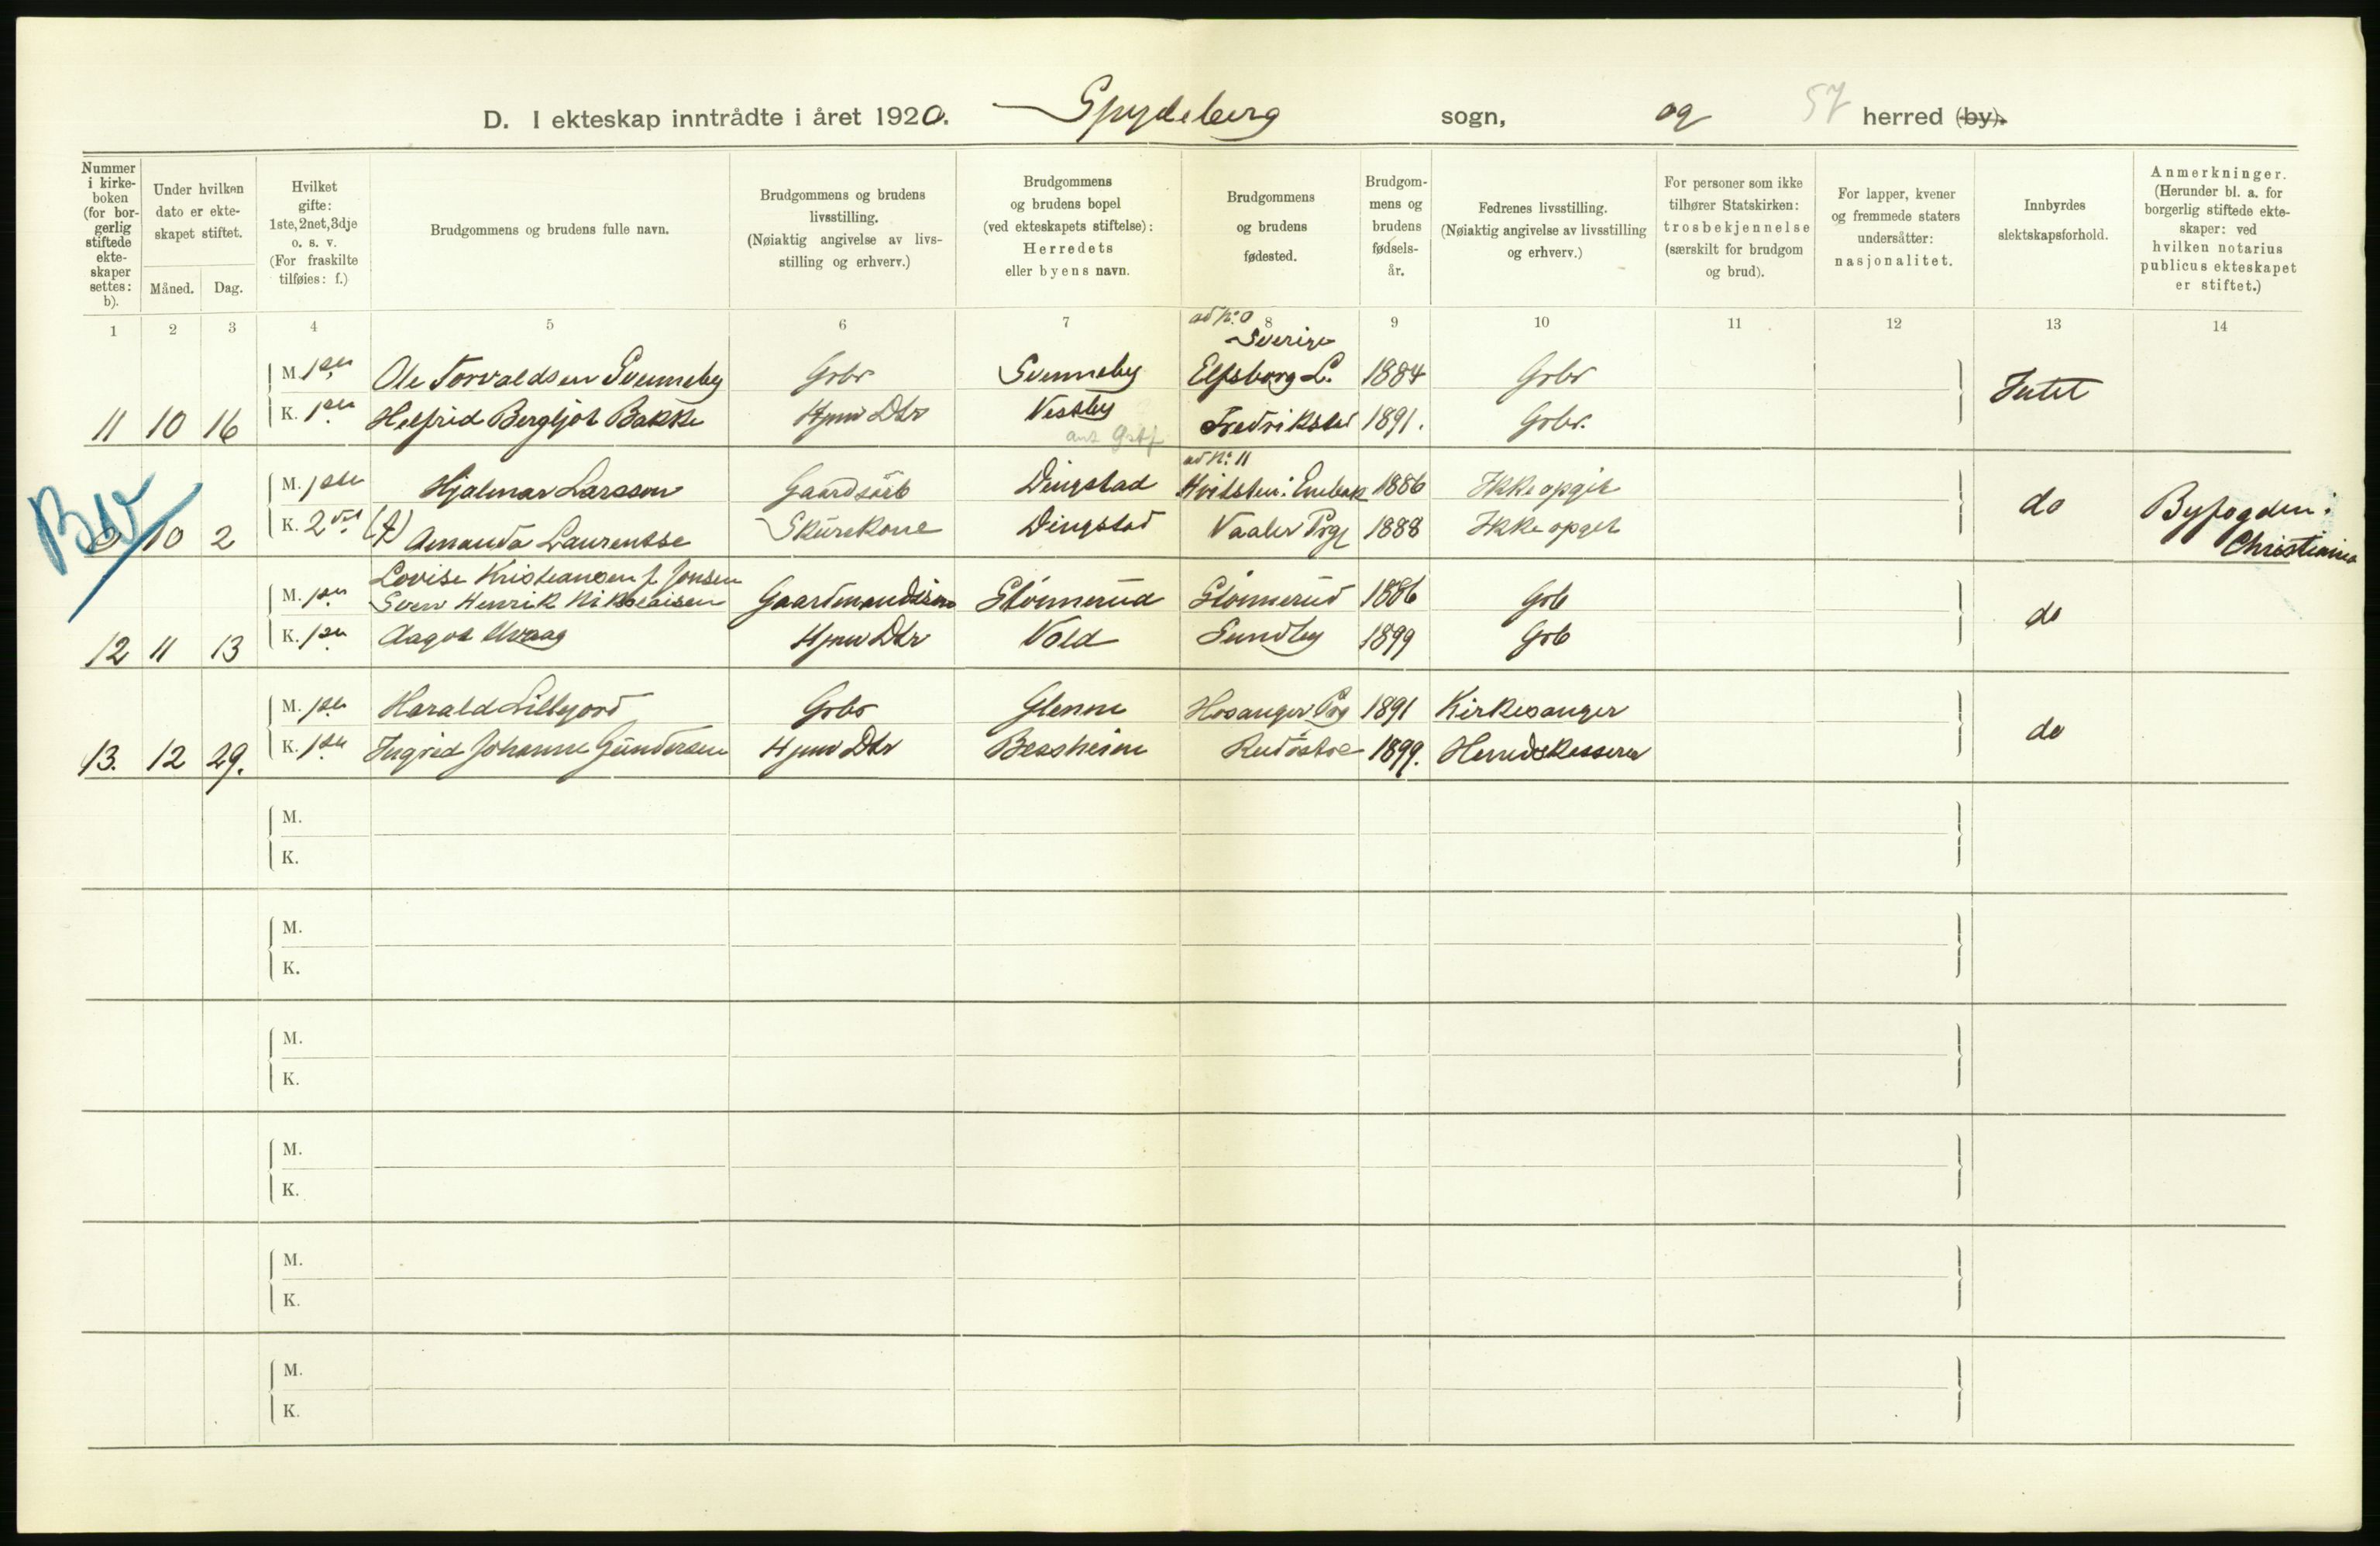 D. I ekteskap inntrådte i året 1920. Spydeberg sogn, og 57 herred (by).
Nummer i kirke-boken (for bor-gerlig stiftede ekte-skaper settes: b).
Under hvilken dato er ekte-skapet stiftet.
Måned. Dag.
Hvilket gifte: 1ste, 2net, 3dje o. s. v. (For fraskilte tilføies: f.)
Brudgommens og brudens fulle navn.
Brudgommens og brudens livsstilling. (Nøiaktig angivelse av livs-stilling og erhverv.)
Brudgommens og brudens bopel (ved ekteskapets stiftelse): Herredets eller byens navn.
Brudgommens og brudens fødested.
Brudgom-mens og brudens fødsels-år.
Fedrenes livsstilling. (Nøiaktig angivelse av livsstilling og erhverv.)
For personer som ikke tilhører Statskirken: trosbekjennelse (særskilt for brudgom og brud).
For lapper, kvener og fremmede staters undersåtter: nasjonalitet.
Innbyrdes slektskapsforhold.
Anmerkninger. (Herunder bl. a. for borgerlig stiftede ekte-skaper: ved hvilken notarius publicus ekteskapet er stiftet.)
1 2 3 4 5 6 7 8 9 10 11 12 13 14
ad No 0
Sverige
M. 1ste Ole Torvaldsen Svenneby Grbr Svenneby Elfsborg L. 1884 Grbr
Intet
11 10 16 K. 1ste Helfrid Bergljot Bakke Hjmv Dtr Vestby Fredriksstad 1891. Grbr.
ad No 11
M. 1ste Hjalmar Larsson Gaardsarb Dingstad Hvitsten i Enebak 1886 Ikke opgit
do Byfogden i
10 2 K. 2det (f) Amanda Laurentse Skurekone Dingstad Vaaler Prgj 1888 Ikke opgit
Christiania
Lovise Kristiansen f. Jonsen
M. 1ste Sven Henrik Nikolaisen Gaardmandssøn Stömnerud Stömnerud 1886 Grb
do
12 11 13 K. 1ste Aagot Hvaag Hjmv Dtr Vold Sundby 1899 Grb
M. 1ste Harald Lillejord Grbr Glenne Hosanger Prg 1891 Kirkesanger
do
13. 12 29. K. 1ste Ingrid Johanne Gundersen Hjmv Dtr Bessheim Rudöstoe 1899. Herredskasserer
M.
K.
M.
K.
M.
K.
M.
K.
M.
K.
M.
K.